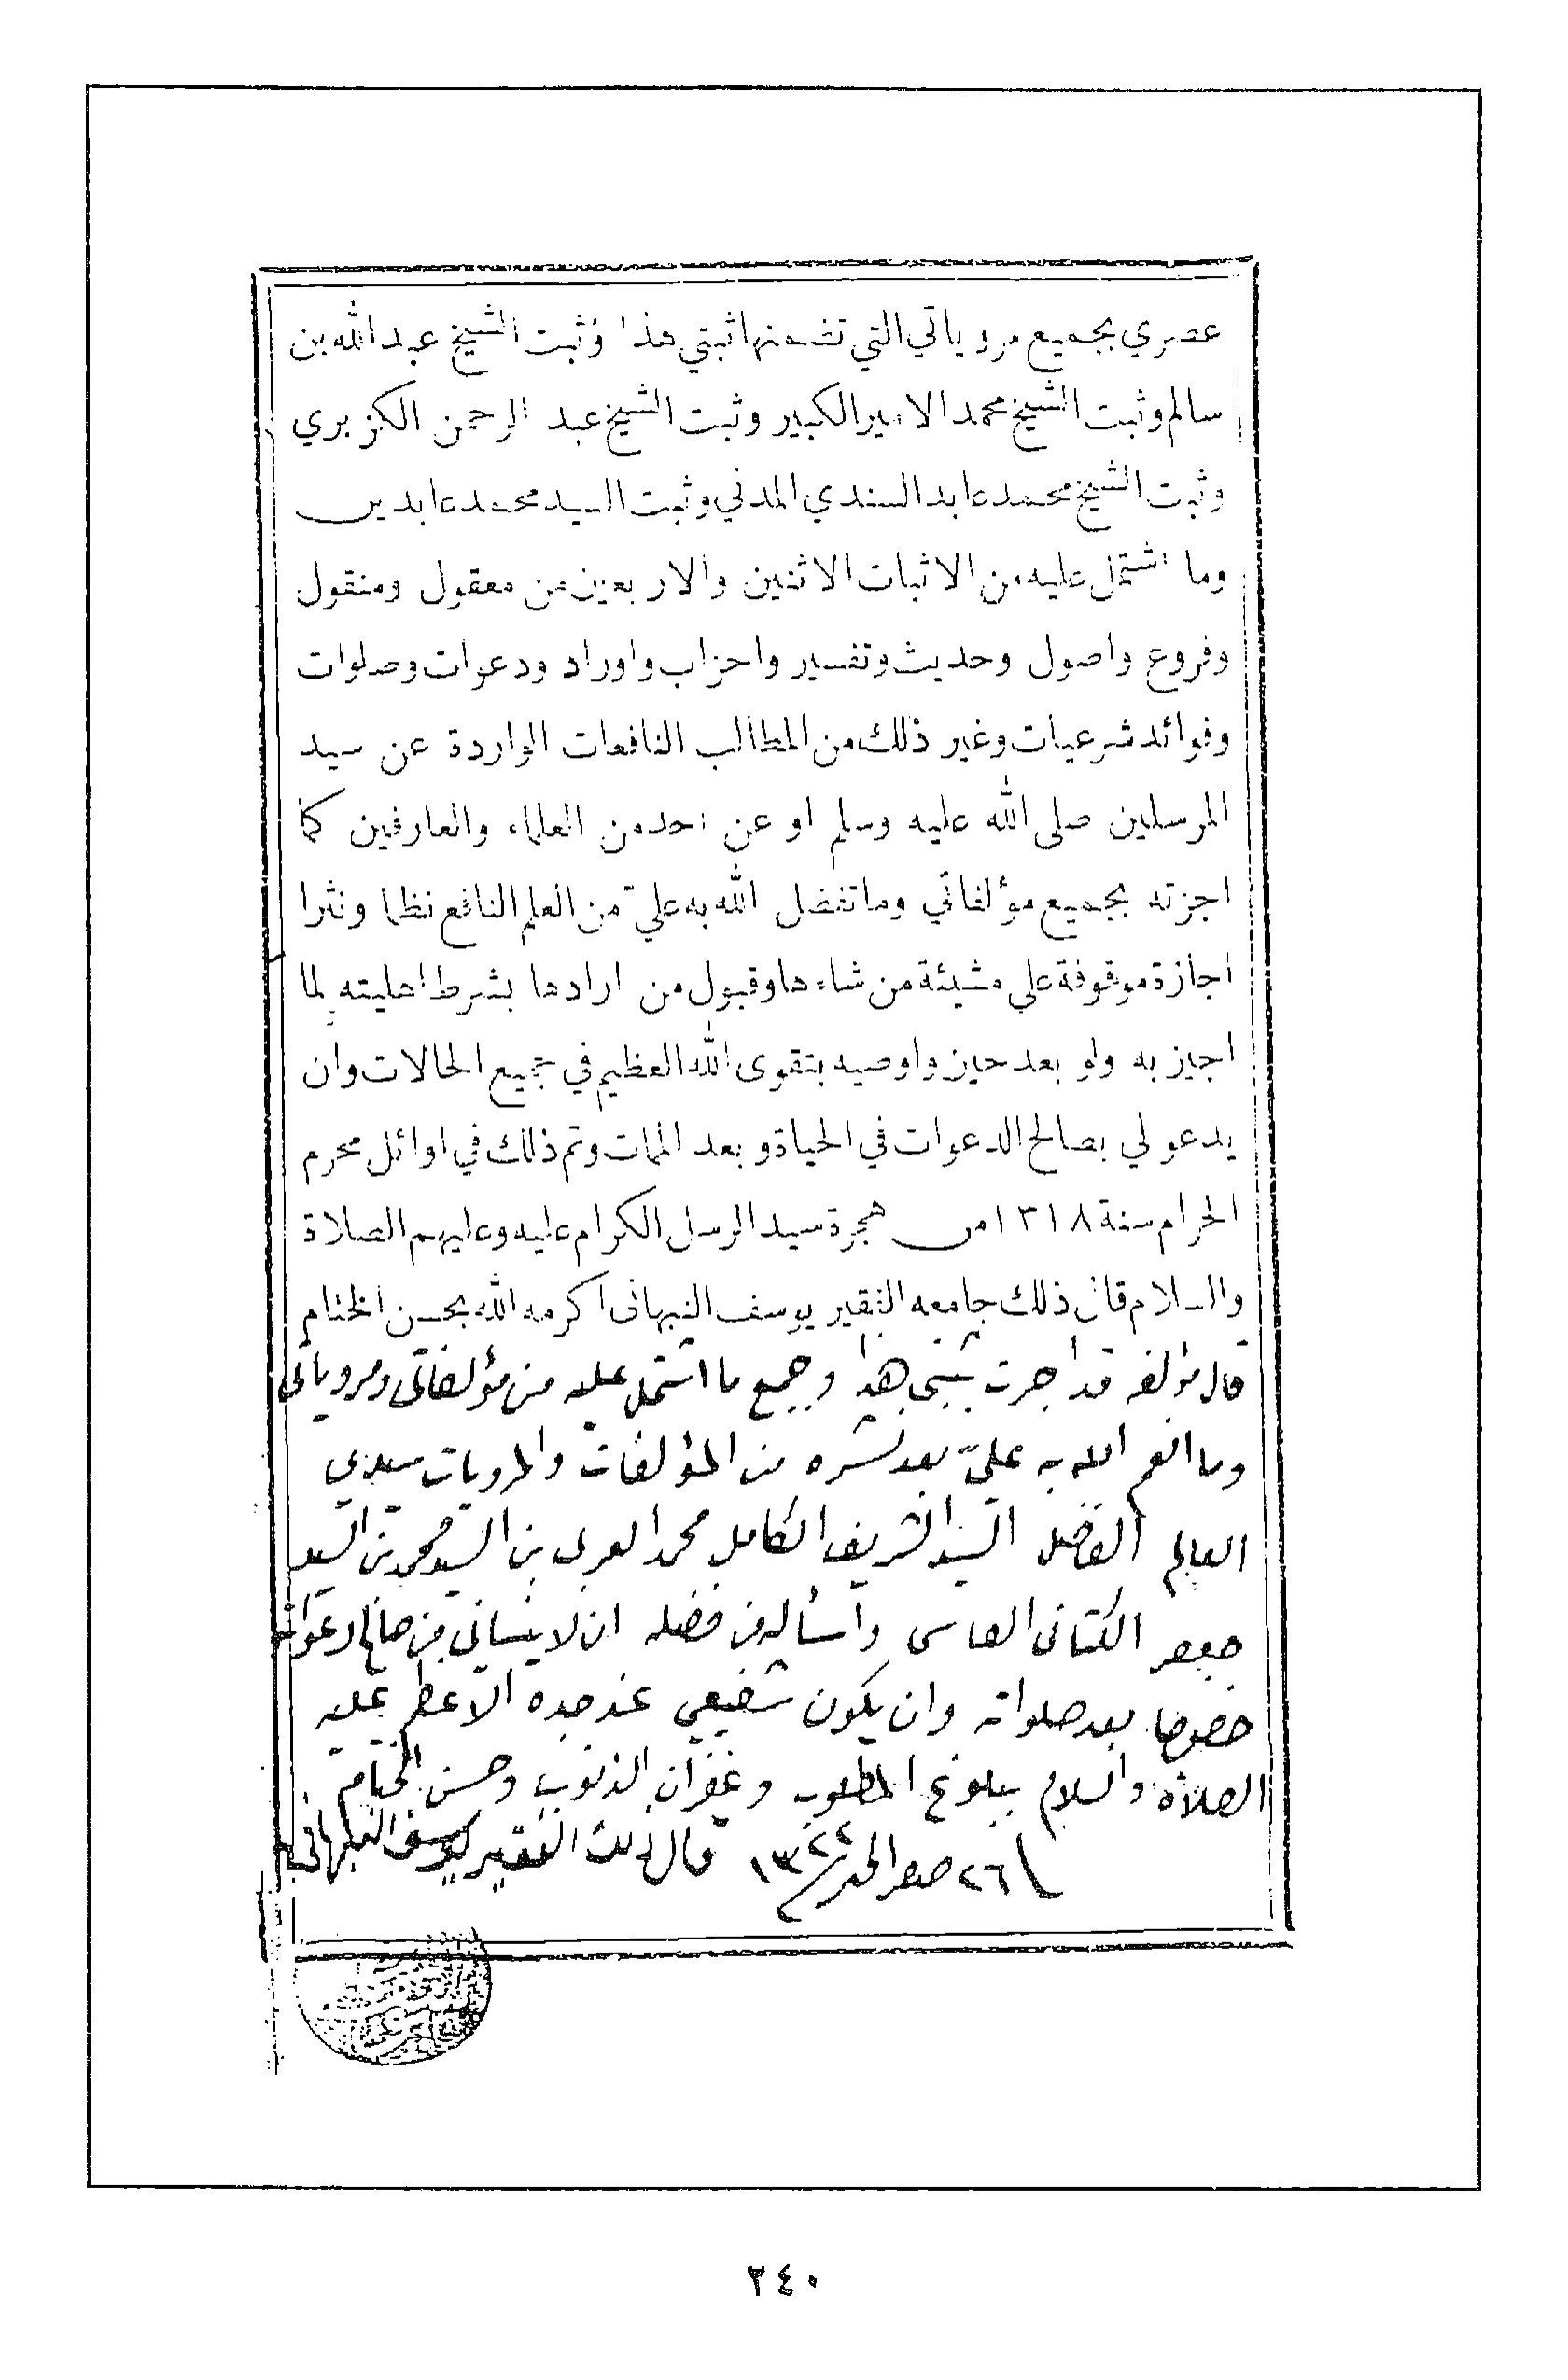 عصري بجميع مروياتي التي تضمنها ثبتي هذا وثبت الشيخ عبدالله بن
سالم وثبت الشيخ محمد الامير الكبير وثبت الشيخ عبد الرحمن الكزبري
وثبت الشيخ محمد عابد السندي المدني وثبت السيد محمد عابدين
وما اشتمل عليه من الاثبات الاثنين والاربعين من معقول ومنقول
وفروع واصول وحديث وتفسير واحزاب واوراد ودعوات وصلوات
وفوائد شرعيات وغير ذلك من المطالب النافعات الواردة عن سيد
المرسلين صلى الله عليه وسلم او عن احد من العلماء والعارفين كما
اجزته بجميع مؤلفاتي وما تفضل الله به عليّ من العلم النافع نظما ونثرا
اجازة موقوفة على مشيئة من شاءها وقبول من ارادها بشرط اهليته لما
اجيز به ولو بعد حين واوصيه بتقوى الله العظيم في جميع الحالات وان
يدعو لي بصالح الدعوات في الحياة وبعد الممات وتم ذلك في اوائل محرم
الحرام سنة ١٣١٨ من هجرة سيد الرسل الكرام عليه وعليهم الصلاة
والسلام قال ذلك جامعه الفقير يوسف النبهانى اكرمه الله بحسن الختام
قال مؤلفه قد اجزت بثبتى هذا وجميع ما اشتمل عليه من مؤلفاتى ومروياتى
وما انعم الله به عليّ بعد نشره من المؤلفات والمرويات سيدي
العالم الفاضل السيد الشريف الكامل محمد العربى بن السيد محمد بن السيد
جعفر الكتانى الفاسى وأسأله من فضله ان لا ينسانى من صالح دعواته
خصوصا بعد صلواته وان يكون شفيعي عند جده الاعظم عليه
الصلاة والسلام ببلوغ المطلوب وغفران الذنوب وحسن الختام
٢٦ صفر الخير ١٣٢٤ قال ذلك الفقير يوسف النبهانى
٢٤٠